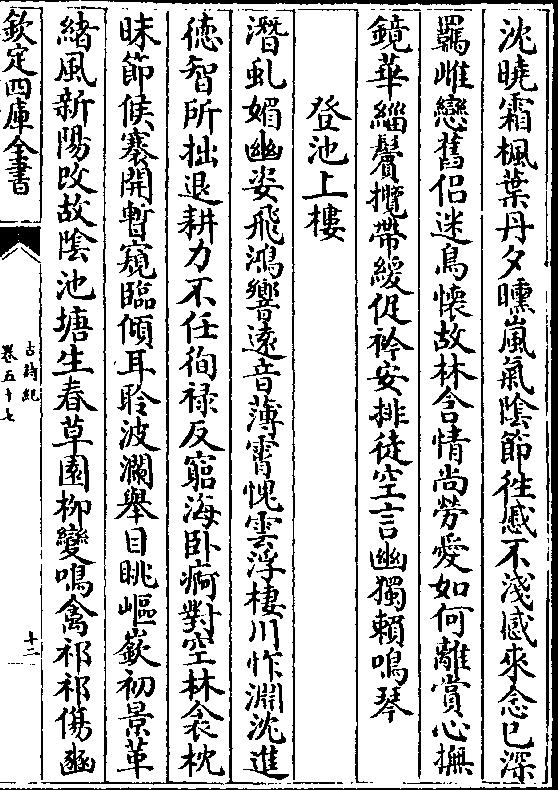 沈曉霜楓葉丹夕曛嵐氣陰節徃慼不淺感來念已深
羈雌戀舊侣迷鳥懷故林含情尚勞愛如何離賞心撫
鏡華緇鬢攬帶緩促衿安排徒空言幽獨賴鳴琴
登池上樓
潛虬媚幽姿飛鴻響遠音薄霄愧雲浮棲川怍淵沈進
徳智所拙退耕力不任徇禄反窮海卧痾對空林衾枕
昧節候褰開暫窺臨傾耳聆波瀾舉目眺嶇嶔初景革
緒風新陽改故陰池塘生春草園柳變鳴禽祁祁傷豳
欽定四庫全書
古詩紀
卷五十七
十二